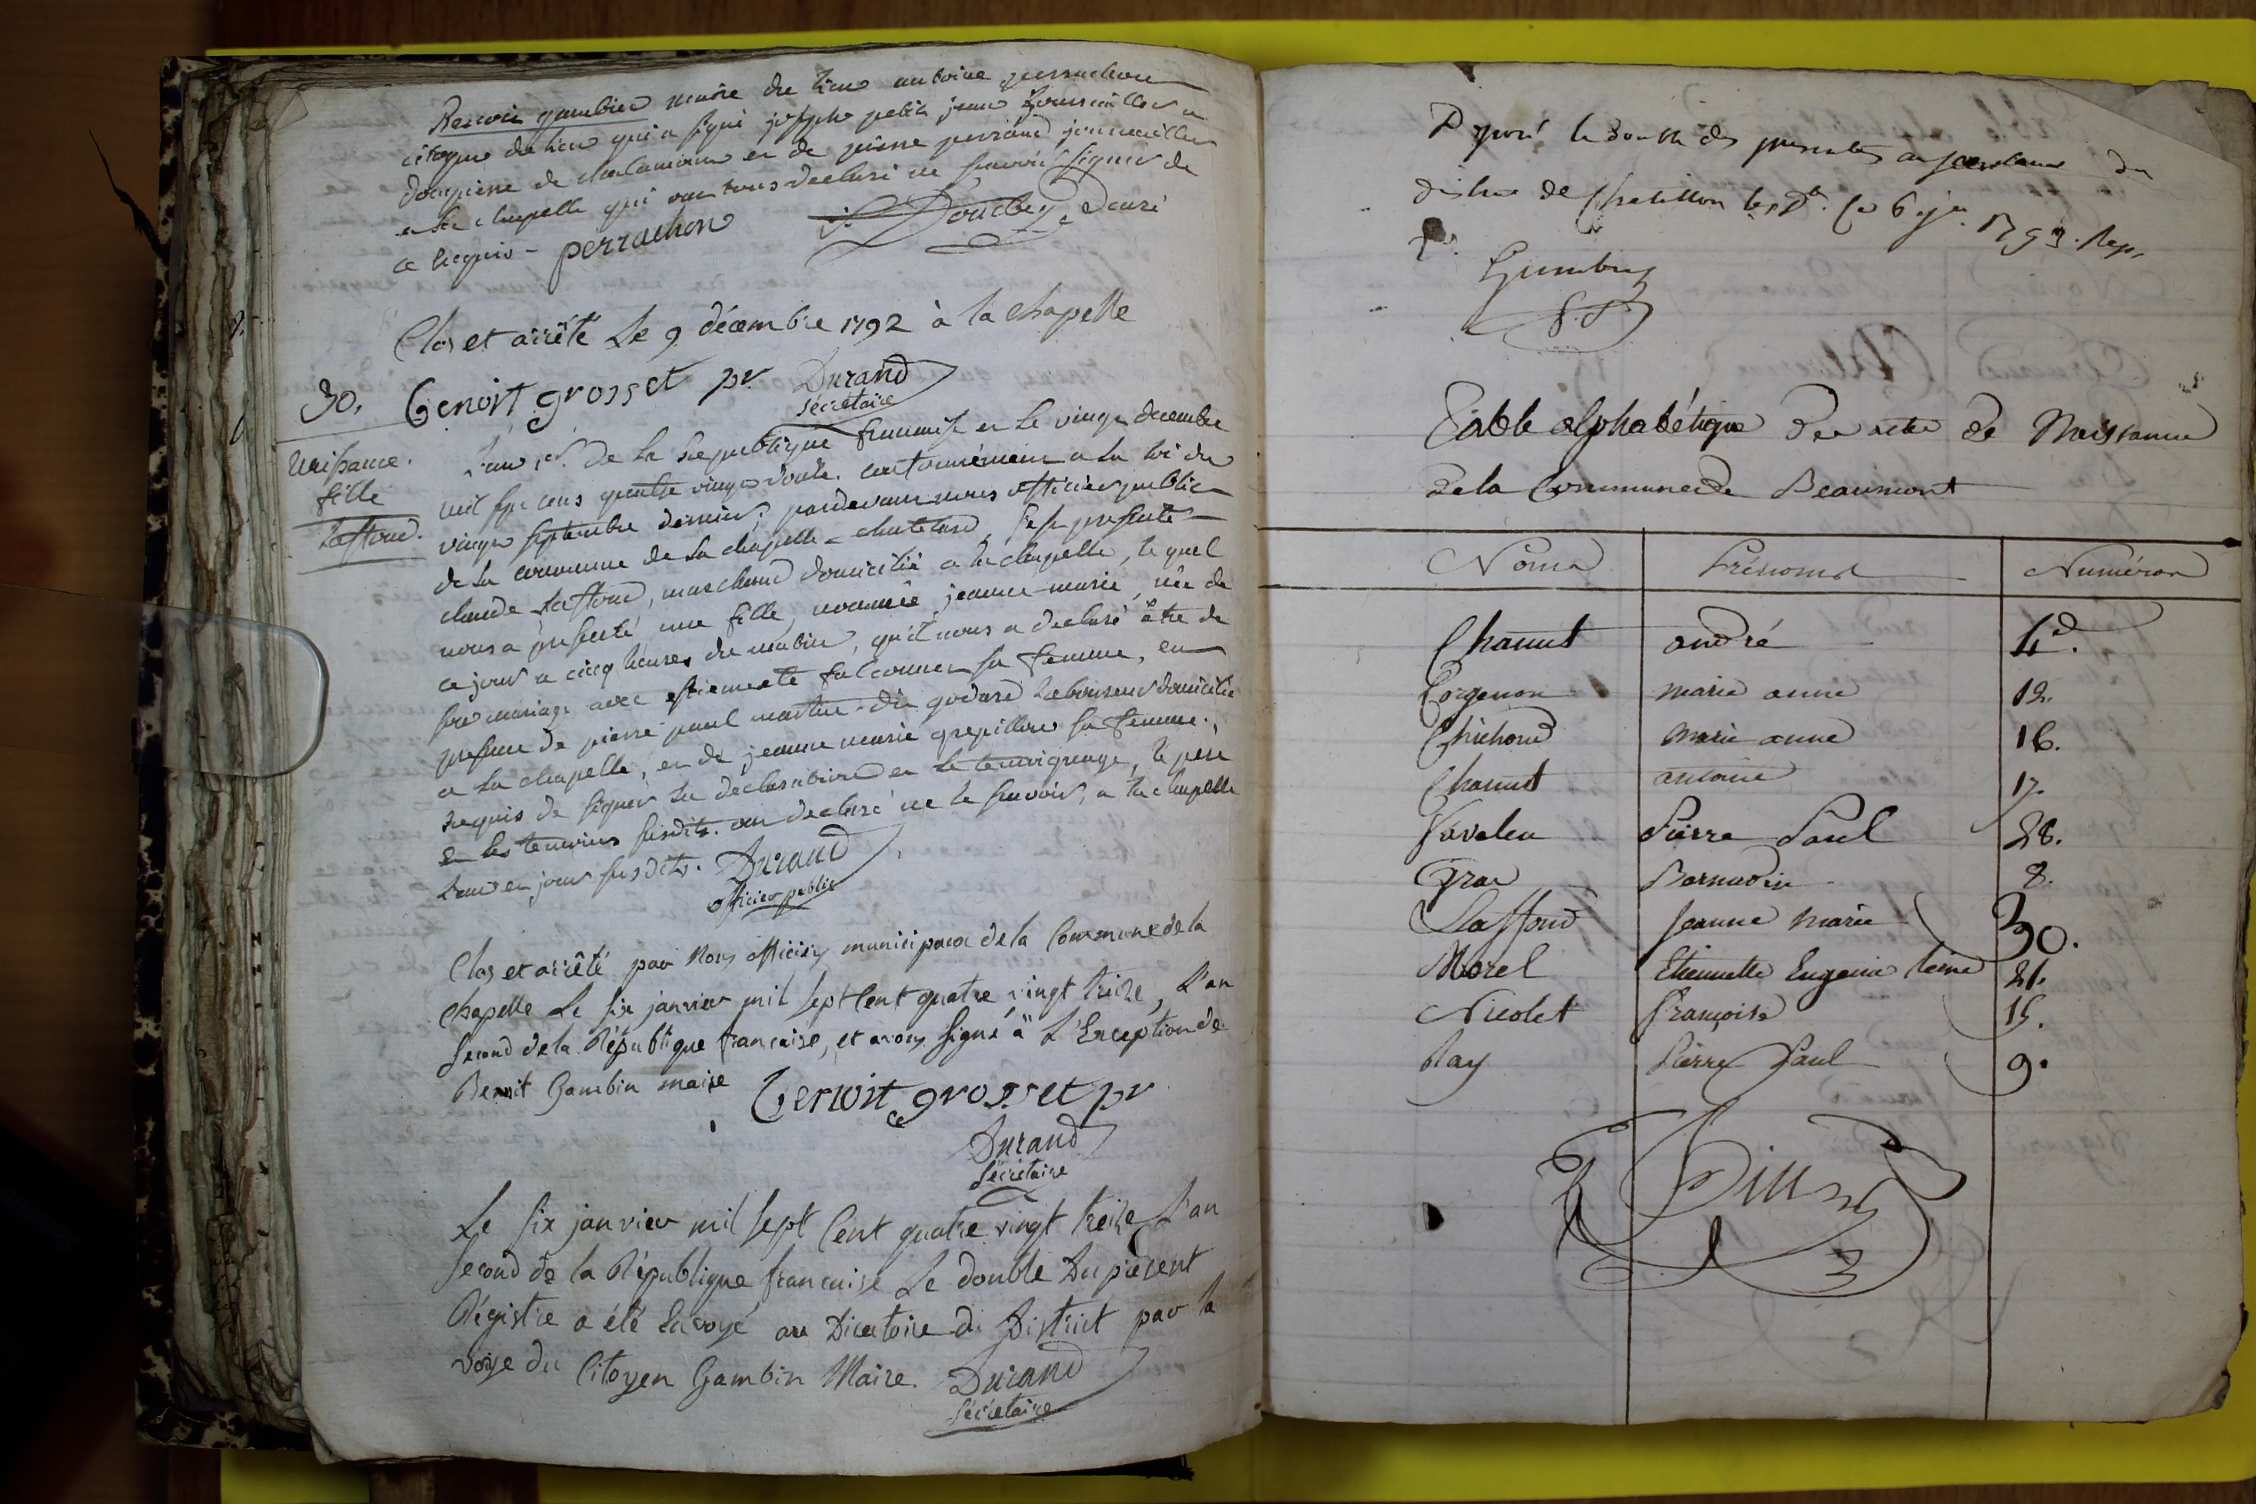 Benoit gambier maire du lieu antoine perrachon
citoyen du lieu qui a signé joseph petit jean
de chalamone et de pierre perrand journaillier
a la chapelle qui ont tous declaré ne savoir signer de
ce requis - perrachon Curé
Clos et arrêté Le 9 décembre 1792 à la Chapelle
30. Benoit grosset pr Durand
Sécretaire
Naissance. L'an 1er. de la republique francaise et le vingt decembre
fille mil sept cens quatre vingt douze. conformément a la loi du
Laffond. vingt septembre dernier, pardevant nous officier public
de la commune de la chapelle-chatelard, s'est presenté
claude Laffond, marchand domicilié a la chapelle, lequel
nous a presenté une fille, nommée jeanne-marie, née de
ce jour a cinq heures du matin, qu'il nous a declaré être de
son mariage avec etiennette falconnet sa femme, en
presence de pierre paul martin-dit godard laboureur domicilié
a la chapelle, et de jeanne marie grepillon sa femme.
requis de signer sa declaration et le temoignage, le pere
et les temoins susdits. ont declaré ne le savoir, a la chapelle
l'an et jour susdits. Durand
officier public
Clos et arrêté par Nous officiers municipaux de la Commune de la
chapelle Le six janvier mil sept Cent quatre vingt treize, L'an
Second de la République francaise, et avons Signé à L'Exception de
Benoit Gambin maire Benoit grosset pr
Durand
Sécrétaire
Le six janvier mil sept Cent quatre vingt treize L'an
Second de la République francaise Le double Du présent
Régistre a été Envoyé au Directoire du District par la
voye du Citoyen Gambin Maire. Durand
Sécrétaire
Deposé le double des presentes au secretariat du
district de Chatillon les D. Ce 6 jer. 1793. Rep.
Table alphabétique des actes de Naissance
de la Commune de Beaumont
Noms Prénoms Numéros
Chanut andré 4.
Corgenon marie anne 12.
Chichoud Marie anne 16.
Chanut antoine 17.
Favelen Pierre Paul 28.
Gras Bernardin 8.
Laffond Jeanne Marie 30.
Morel Etiennette Eugenie Reine 21.
Nicolet Françoise 15.
Ray Pierre Paul 9.